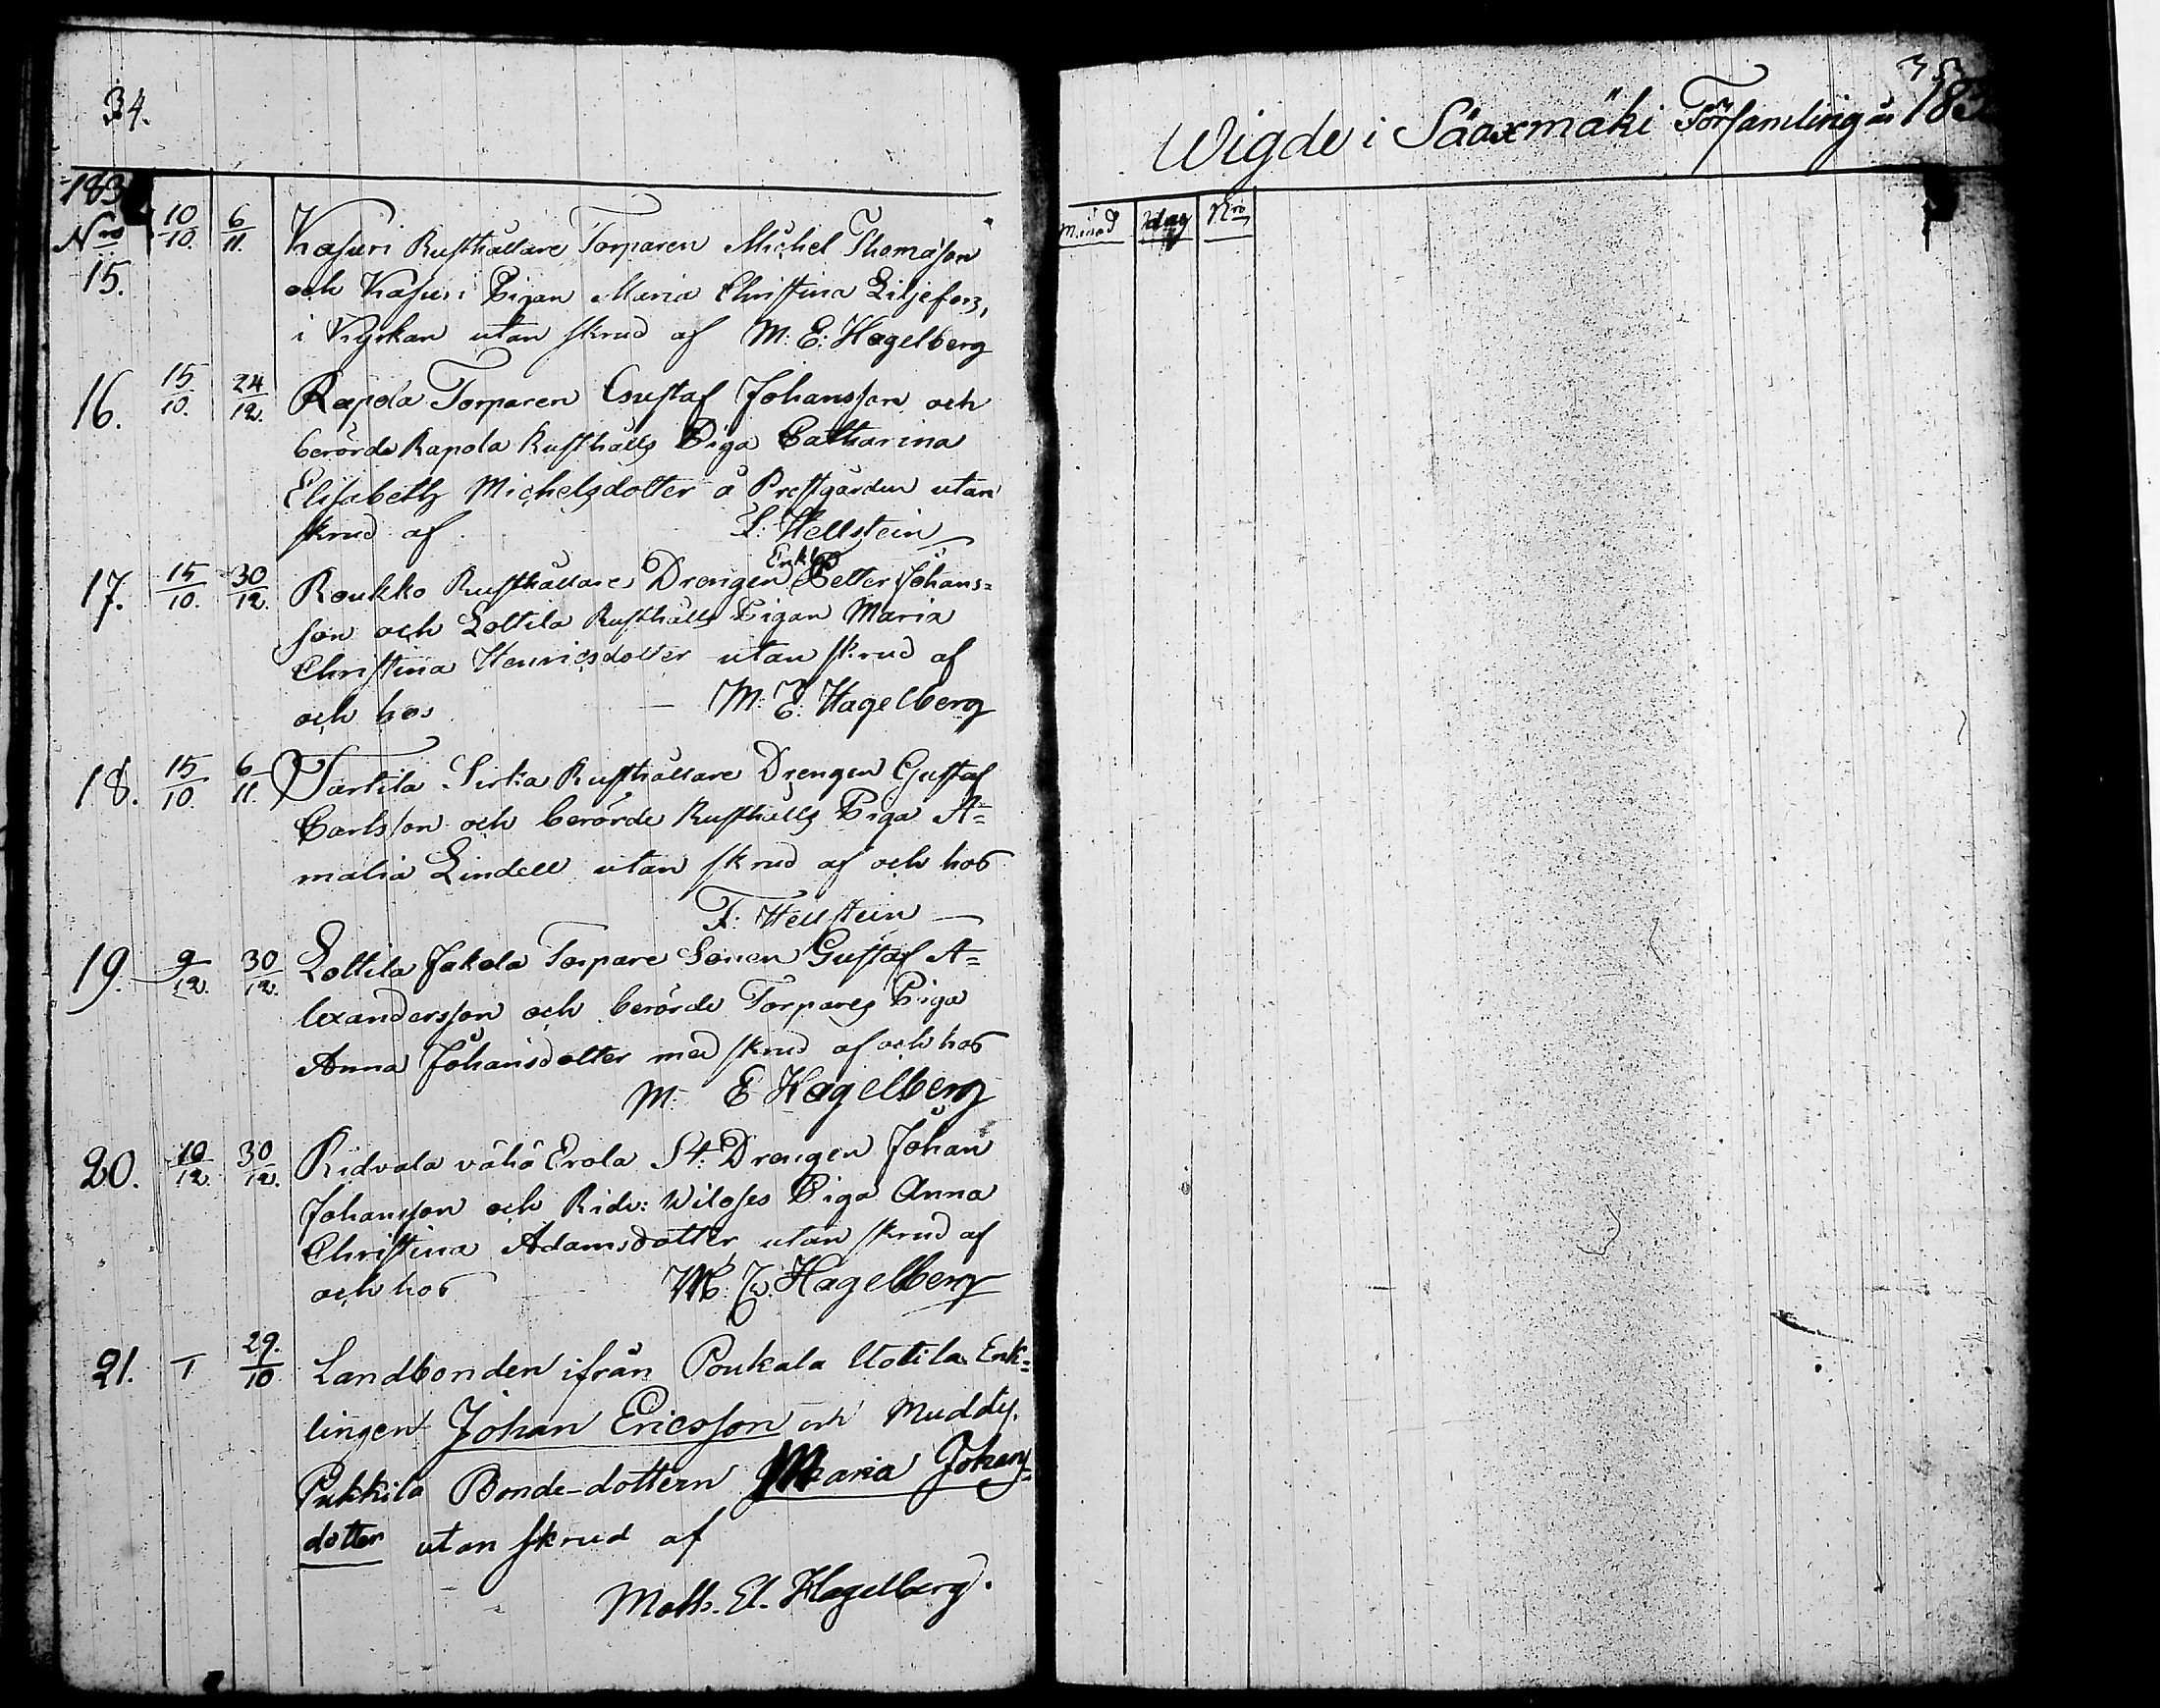 34.
183
Nro 10/10. 6/11. Kasuri Rusthållare Torparen Michel Thomasson
15. och Kasuri Pigan Maria Christina Liljefors,
i Kyrkan utan skrud af M: E: Hagelberg
16. 15/10. 24/12. Rapola Torparen Gustaf Johansson och
berörde Rapola Rusthålls Piga Catharina
Elisabeth Michelsdotter å Prestgården utan
skrud af Hellstein
Enkl.
17. 15/10. 30/12. Roukko Rusthållare Drengen Petter Johans=
son och Lottila Rusthålls Pigan Maria
Christina Henricsdotter utan skrud af
och hos M: E: Hagelberg
18. 15/10. 6/11. Tarttila Sirka Rusthållare Drengen Gustaf
Carlsson och berörde Rusthålls Piga A=
malia Lindell utan skrud af och hos
F: Hellstein
19. 9/12. 30/12. Lottila Jakola Torpare Sonen Gustaf A=
lexandersson och berörde Torpares Piga
Anna Johansdotter med skrud af och hos
M: E Hagelberg
20. 10/12. 30/12. Ridvala vähä Erola St: Drengen Johan
Johansson och Ridv: Piga Anna
Christina Adamsdotter utan skrud af
och hos M: E. Hagelberg
21. T 29./10 Landbonden ifrån Poukala Uotila Enk=
lingen Johan Ericsson och
Pukkila Bonde-dottern Maria Johans=
dotter utan skrud af
Math. El. Hagelberg.
35
Wigde i Sääxmäki Församling år 183
Månad dag Nro